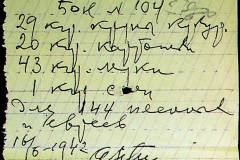 БОН N 104
29 кг. крупа кукур.
20 кг. картошки
43 кг. муки
1 кг. соли
Для 144 пленных
и евреев
16/6-1942